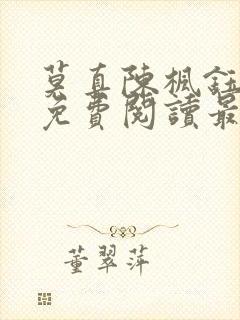 莫真陳楓鈺
免費閱讀最
董翠萍